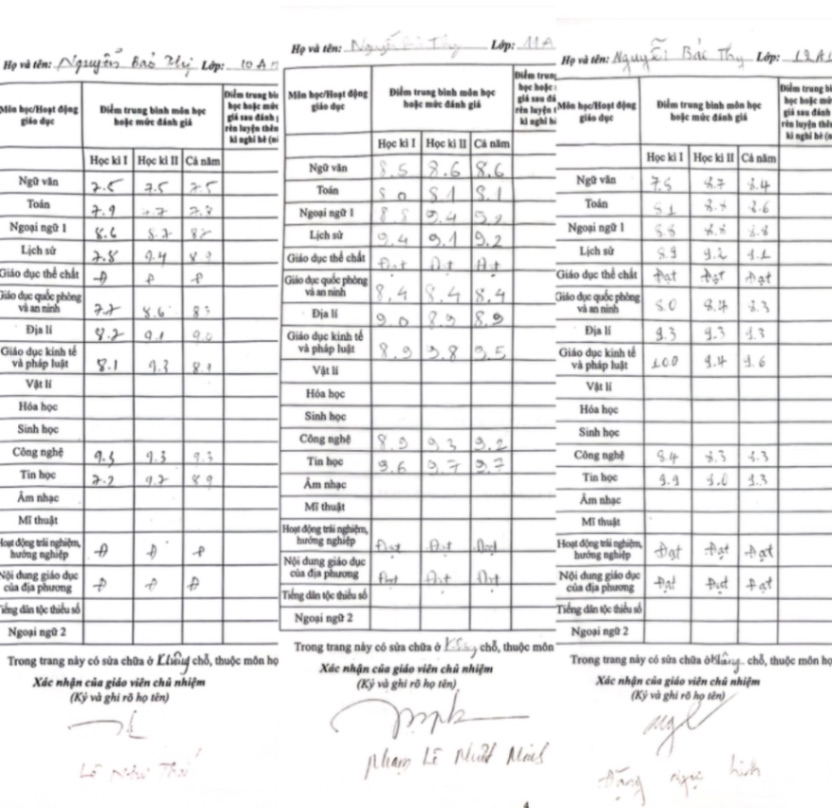 Họ và tên: Nguyễn Bảo Thy Lớp: 10A
Môn học/Hoạt động giáo dục
Điểm trung bình môn học hoặc mức đánh giá
Học kì I Học kì II Cả năm
Ngữ văn 7.5 7.5 7.5
Toán 7.9
Ngoại ngữ 1 8.6
Lịch sử 7.8 9.4 8.9
Giáo dục thể chất Đ Đ Đ
Giáo dục quốc phòng và an ninh 7.7 8.6 8.3
Địa lí 8.7 9.1 9.0
Giáo dục kinh tế và pháp luật 8.1 9.3
Vật lí
Hóa học
Sinh học
Công nghệ 9.3 9.3 9.3
Tin học 9.2 8.9
Âm nhạc
Mĩ thuật
Hoạt động trải nghiệm, hướng nghiệp Đ Đ Đ
Nội dung giáo dục của địa phương Đ Đ Đ
Tiếng dân tộc thiểu số
Ngoại ngữ 2
Trong trang này có sửa chữa ở không chỗ, thuộc môn họ
Xác nhận của giáo viên chủ nhiệm
(Ký và ghi rõ họ tên)
Họ và tên: Nguyễn Thy Lớp: 11A
Môn học/Hoạt động giáo dục
Điểm trung bình môn học hoặc mức đánh giá
Học kì I Học kì II Cả năm
Ngữ văn 8.5 8.6 8.6
Toán 8.0 8.1 8.1
Ngoại ngữ 1 8.8 9.4 9.2
Lịch sử 9.4 9.1 9.2
Giáo dục thể chất Đạt Đạt Đạt
Giáo dục quốc phòng và an ninh 8.4 8.4 8.4
Địa lí 9.0 8.9 8.9
Giáo dục kinh tế và pháp luật 8.9 9.8 9.5
Vật lí
Hóa học
Sinh học
Công nghệ 8.9 9.3 9.2
Tin học 9.6 9.7 9.7
Âm nhạc
Mĩ thuật
Hoạt động trải nghiệm, hướng nghiệp Đạt Đạt Đạt
Nội dung giáo dục của địa phương Đạt Đạt Đạt
Tiếng dân tộc thiểu số
Ngoại ngữ 2
Trong trang này có sửa chữa ở chỗ, thuộc môn
Xác nhận của giáo viên chủ nhiệm
(Ký và ghi rõ họ tên)
Phạm Lê Nhật Minh
4
Họ và tên: Nguyễn Bảo Thy Lớp: 12A1
Môn học/Hoạt động giáo dục
Điểm trung bình môn học hoặc mức đánh giá
Học kì I Học kì II Cả năm
Ngữ văn 7.5 8.7
Toán 8.1 8.6
Ngoại ngữ 1 8.8 8.8 8.8
Lịch sử 8.9 9.2 9.1
Giáo dục thể chất Đạt Đạt Đạt
Giáo dục quốc phòng và an ninh 8.0 8.3
Địa lí 9.3 9.3 9.3
Giáo dục kinh tế và pháp luật 10.0 9.4 9.6
Vật lí
Hóa học
Sinh học
Công nghệ 8.4
Tin học 9.9 9.0 9.3
Âm nhạc
Mĩ thuật
Hoạt động trải nghiệm, hướng nghiệp Đạt Đạt Đạt
Nội dung giáo dục của địa phương Đạt Đạt Đạt
Tiếng dân tộc thiểu số
Ngoại ngữ 2
Trong trang này có sửa chữa ở không chỗ, thuộc môn họ
Xác nhận của giáo viên chủ nhiệm
(Ký và ghi rõ họ tên)
Đặng Ngọc